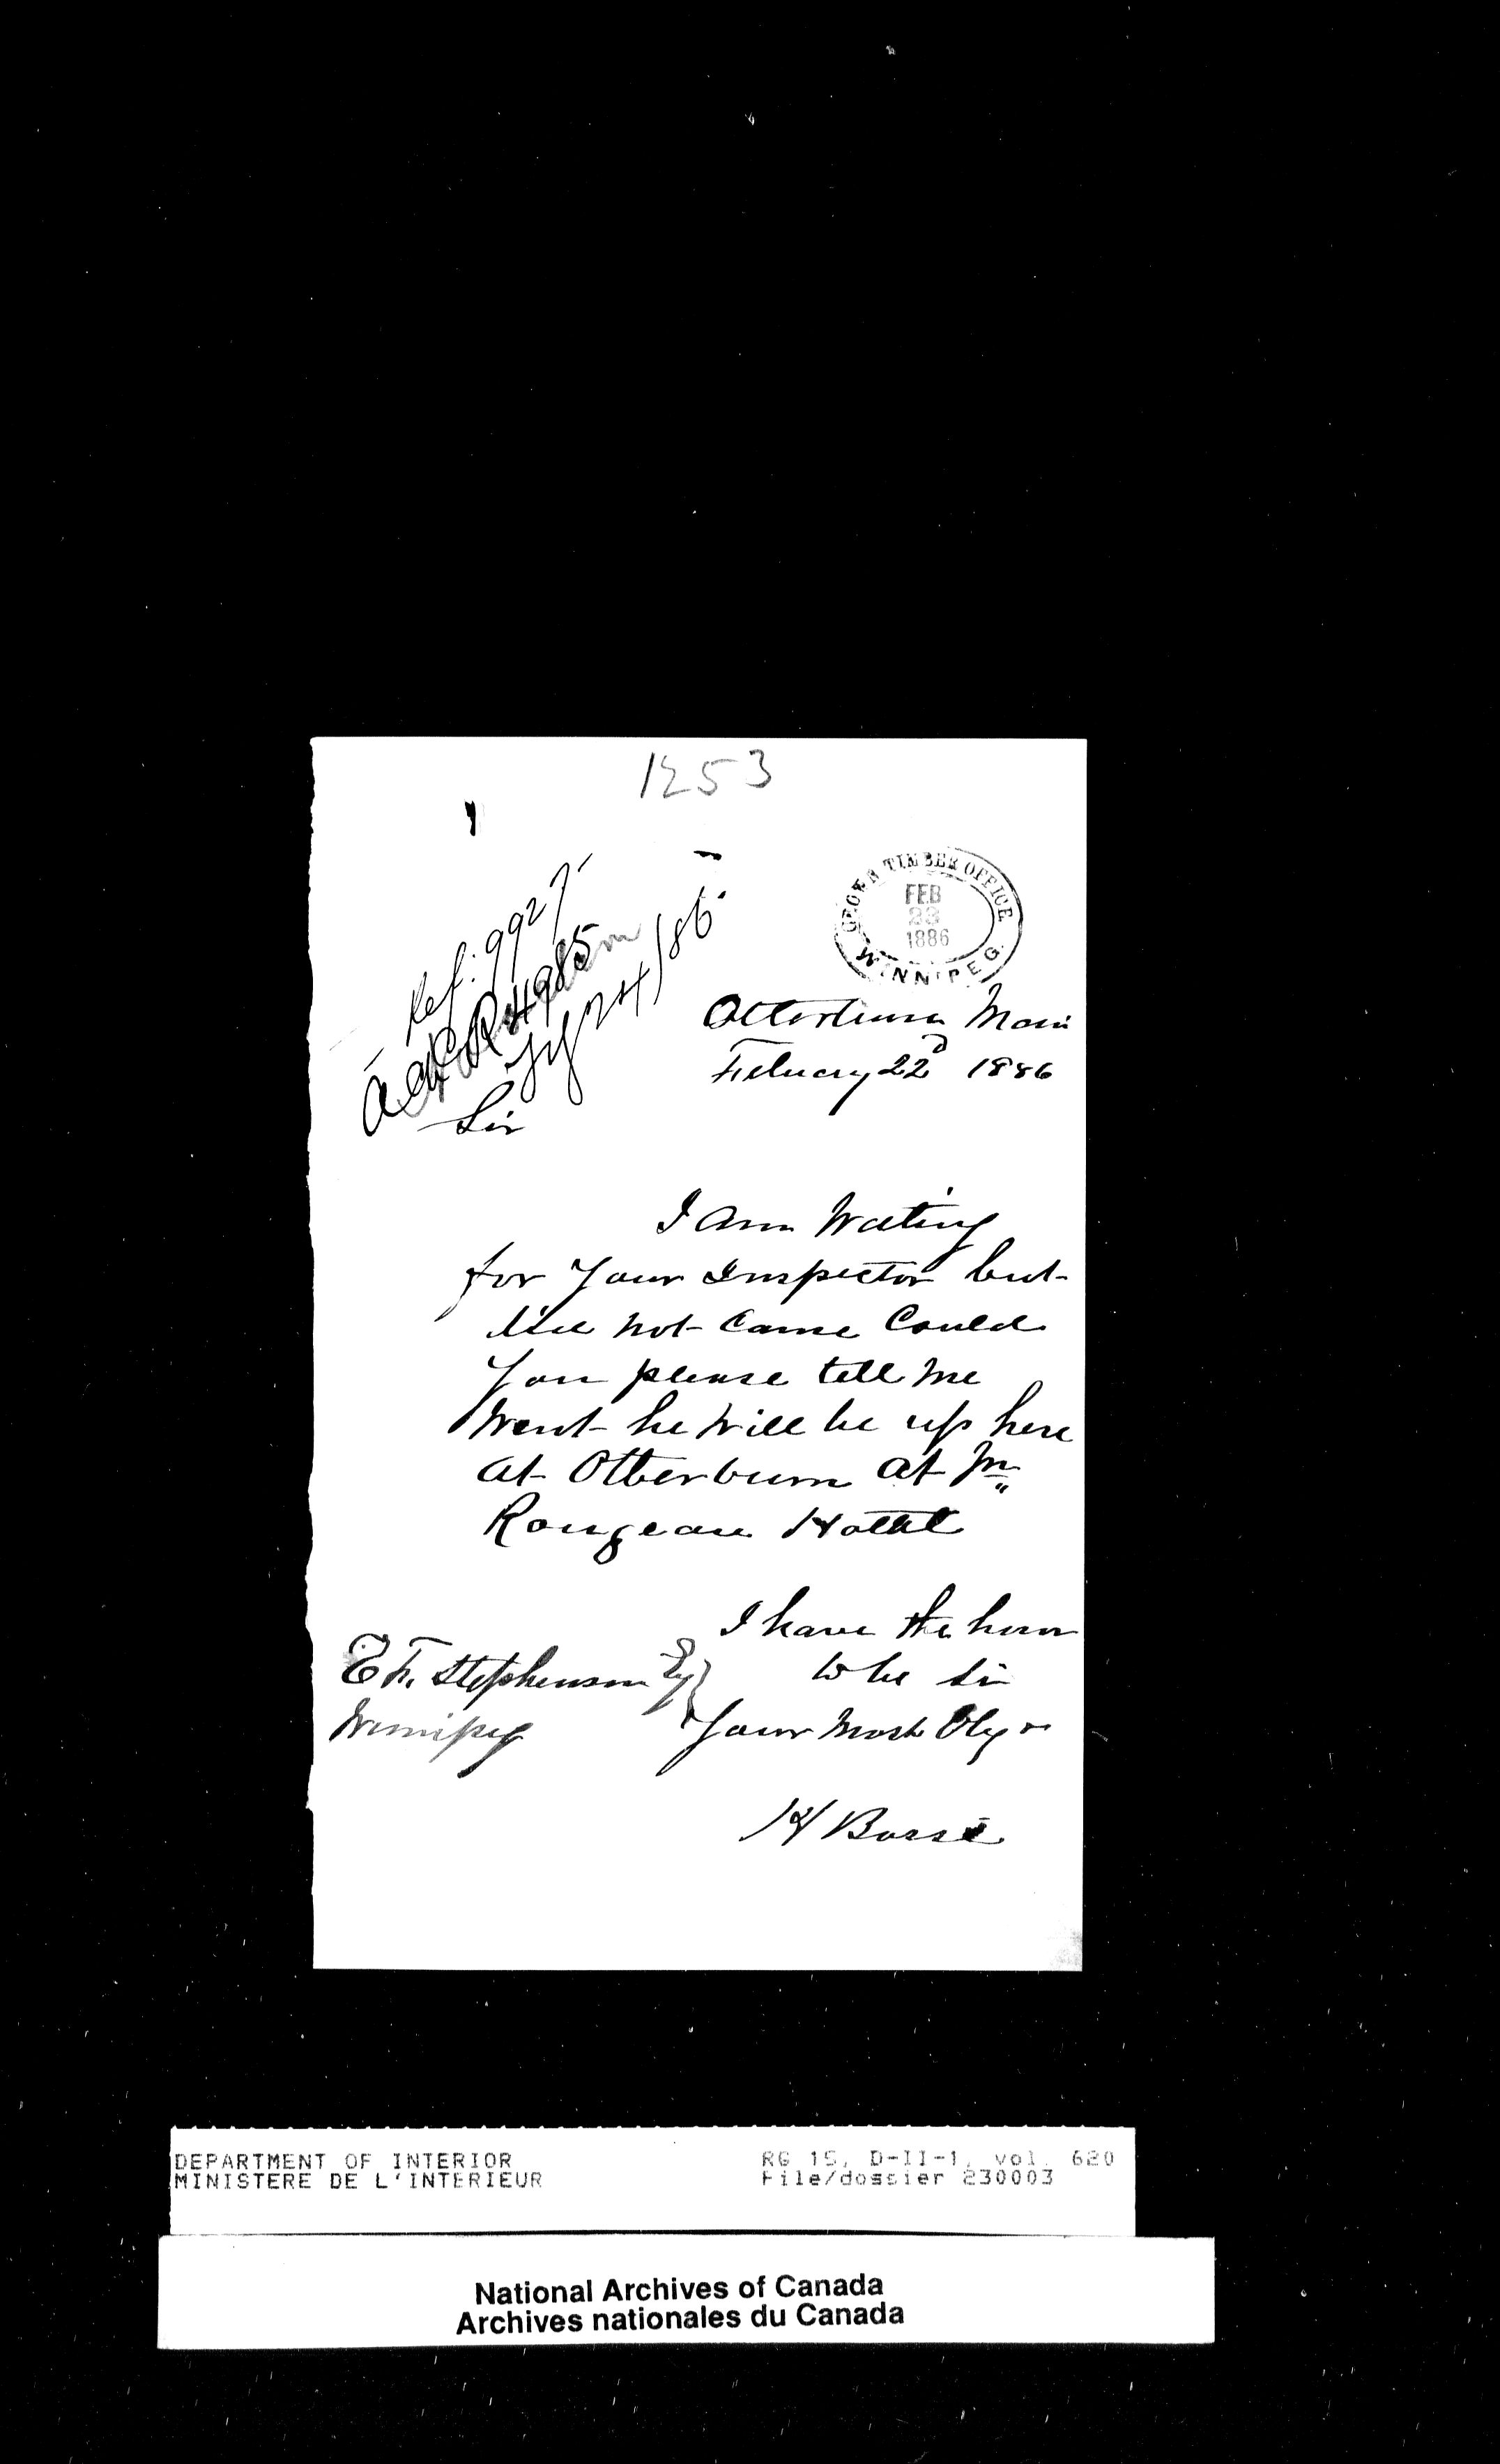 1253
CROWN TIMBER OFFICE
FEB
23
1886
WINNIPEG.
Ref: 9927
4985
24/86
Otterburn Mani
Febuary 22d 1886
Sir
I am Wating
for Your Inspector but
not Came Could
You please tell me
Went he Will be up here
at Otterburn at Mr
Rougeau Hotel
I have the honor
to be Sir
E F. Stephenson Esq
Winnipeg
Your Most Oby
H Bossé
DEPARTMENT OF INTERIOR
MINISTERE DE L'INTERIEUR
RG 15, D-II-1, vol. 620
File/dossier 230003
National Archives of Canada
Archives nationales du Canada